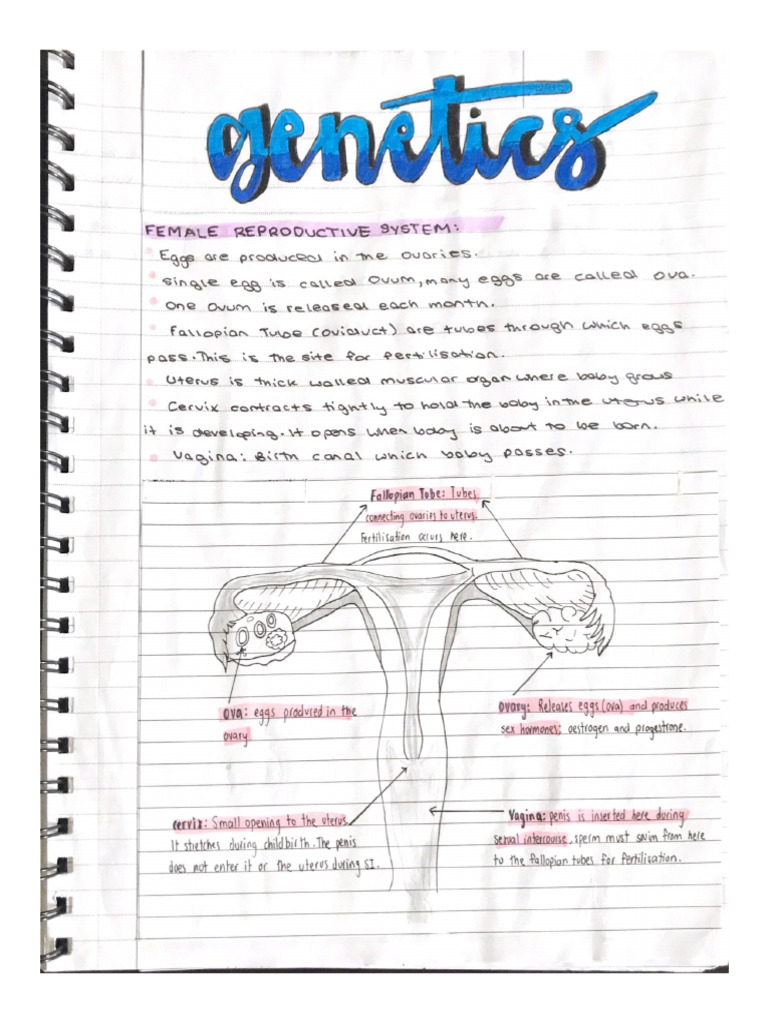 genetics
FEMALE REPRODUCTIVE SYSTEM:
Eggs are produced in the ovaries.
Single egg is called Ovum, many eggs are called ova.
One Ovum is released each month.
Fallopian Tube (Oviduct) are tubes through which eggs
pass. This is the site for fertilisation.
Uterus is thick walled muscular organ where baby grows
Cervix contracts tightly to hold the baby in the uterus while
it is developing. It opens when baby is about to be born.
Vagina: Birth canal which baby passes.
Fallopian Tube: Tubes
connecting ovaries to uterus.
Fertilisation occurs here.
ova: eggs produced in the
ovary
ovary: Releases eggs (ova) and produces
sex hormones; oestrogen and progestrone.
cervix: Small opening to the uterus.
It stretches during childbirth. The penis
does not enter it or the uterus during SI.
Vagina: penis is inserted here during
sexual intercourse, sperm must swim from here
to the fallopian tubes for fertilisation.